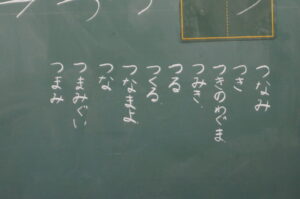 つなみ
つき
つきのめぐま
つみき
つる
つくる
つなまよ
つな
つまみぐい
つまみ